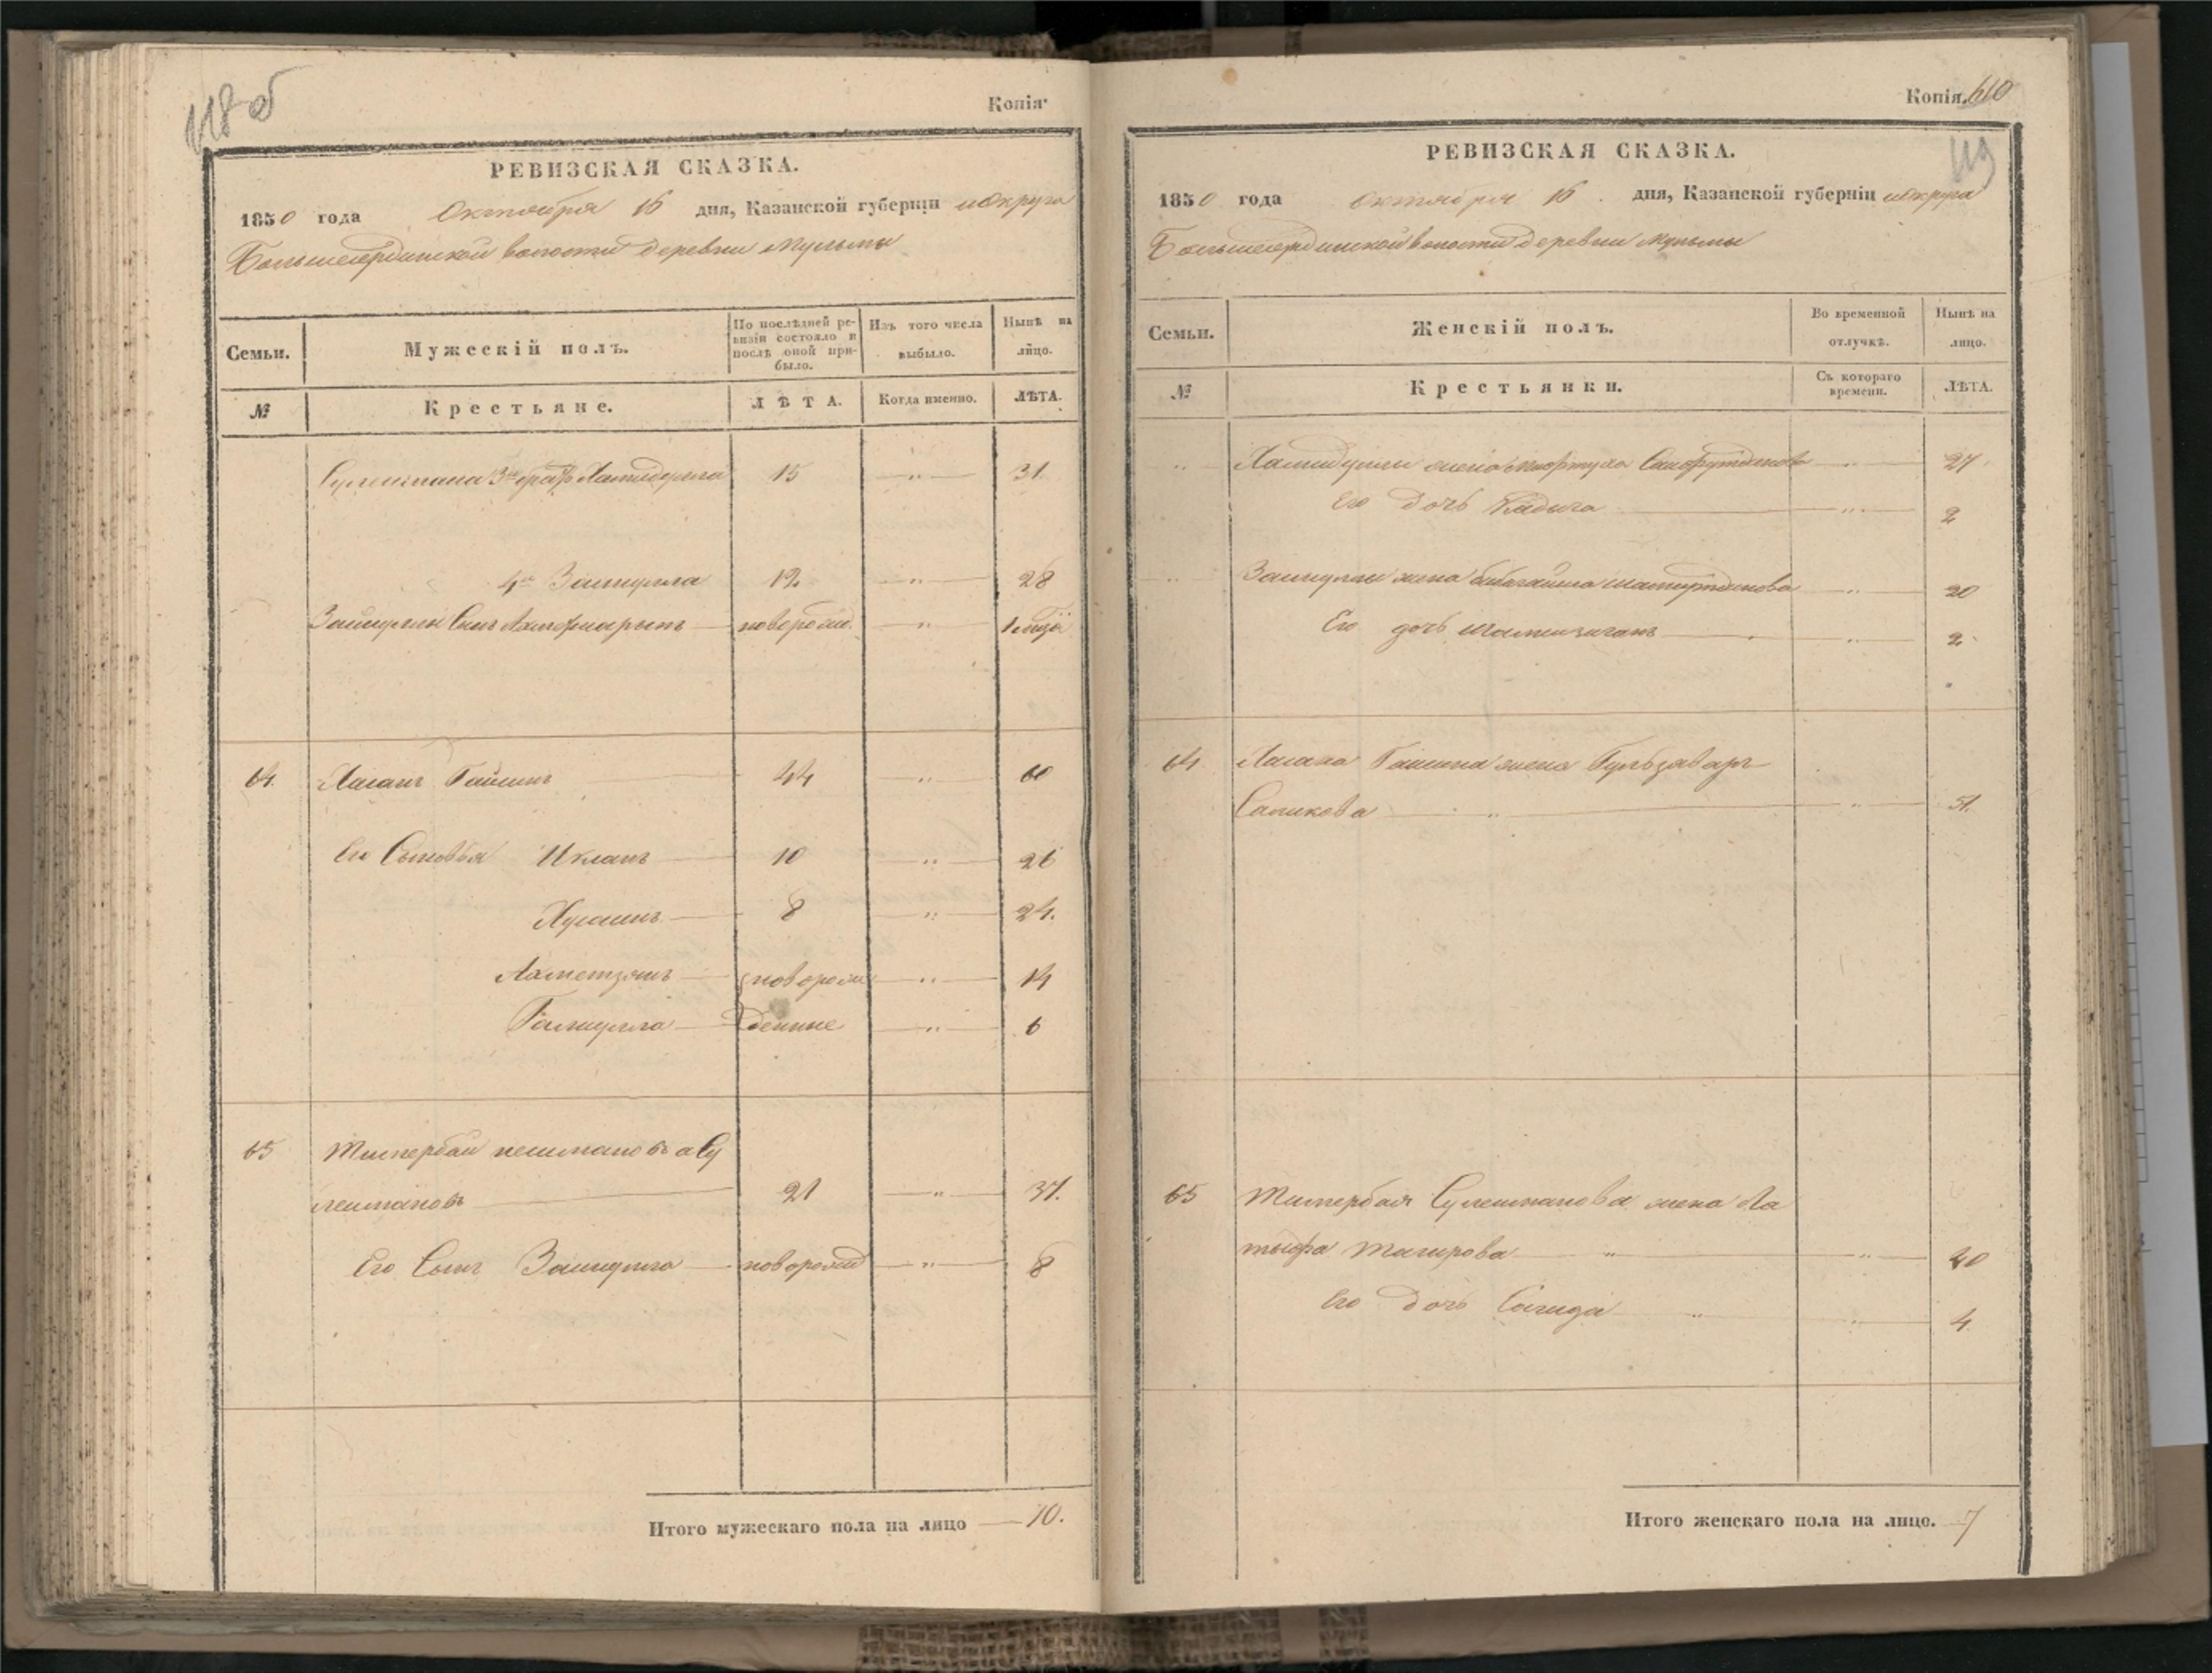 118 об
Копія
РЕВИЗСКАЯ СКАЗКА.
1850 года Октября 16 дня, Казанской губерніи и округа
Большеатринской волости деревни Мульмы
Семьи.
Мужескій полъ.
По послѣдней ре-
визіи состояло и
послѣ оной при-
было.
Изъ того числа
выбыло.
Нынѣ на
лицо.
№
Крестьяне.
ЛѢТА.
Когда именно.
ЛѢТА.
Сулеймана 3й братъ Хамидулла 15 — " — 31.
4й Зайнулла 12 — " — 28
Зайнуллы Сынъ новорожд. — " —
64. Хасанъ Гайсинъ 44 " 60
Его Сыновья Икланъ — 10 — " — 26
Хусаинъ — 8 — " — 24.
Ахметзянъ — новорож — " — 14
Галиулла — денные — " — 6
65 Тимербай нелиманова Су
леймановъ — 21 — " — 37.
Его Сынъ Зайнулла — новорожд — " — 8
Итого мужескаго пола на лицо — 10.
Копія. 610
119
РЕВИЗСКАЯ СКАЗКА.
1850 года Октября 16 дня, Казанской губерніи и округа
Большеатринской волости деревни Мульмы
Семьи.
Женскій полъ.
Во временной
отлучкѣ.
Нынѣ на
лицо.
№
Крестьянки.
Съ котораго
времени.
ЛѢТА.
" Хамидуллы жена — " — 27.
Его дочь Хадича — " — 2
" Зайнуллы жена — " — 20
Его дочь — " — 2
64. Хасана Гайсина жена Гульзаваръ
Саликова — " — " — 51.
65 Тимербая Сулейманова жена Ла
тыфа Тагирова — " — " — 40
Его дочь Сагида — " — " — 4.
Итого женскаго пола на лицо. — 7